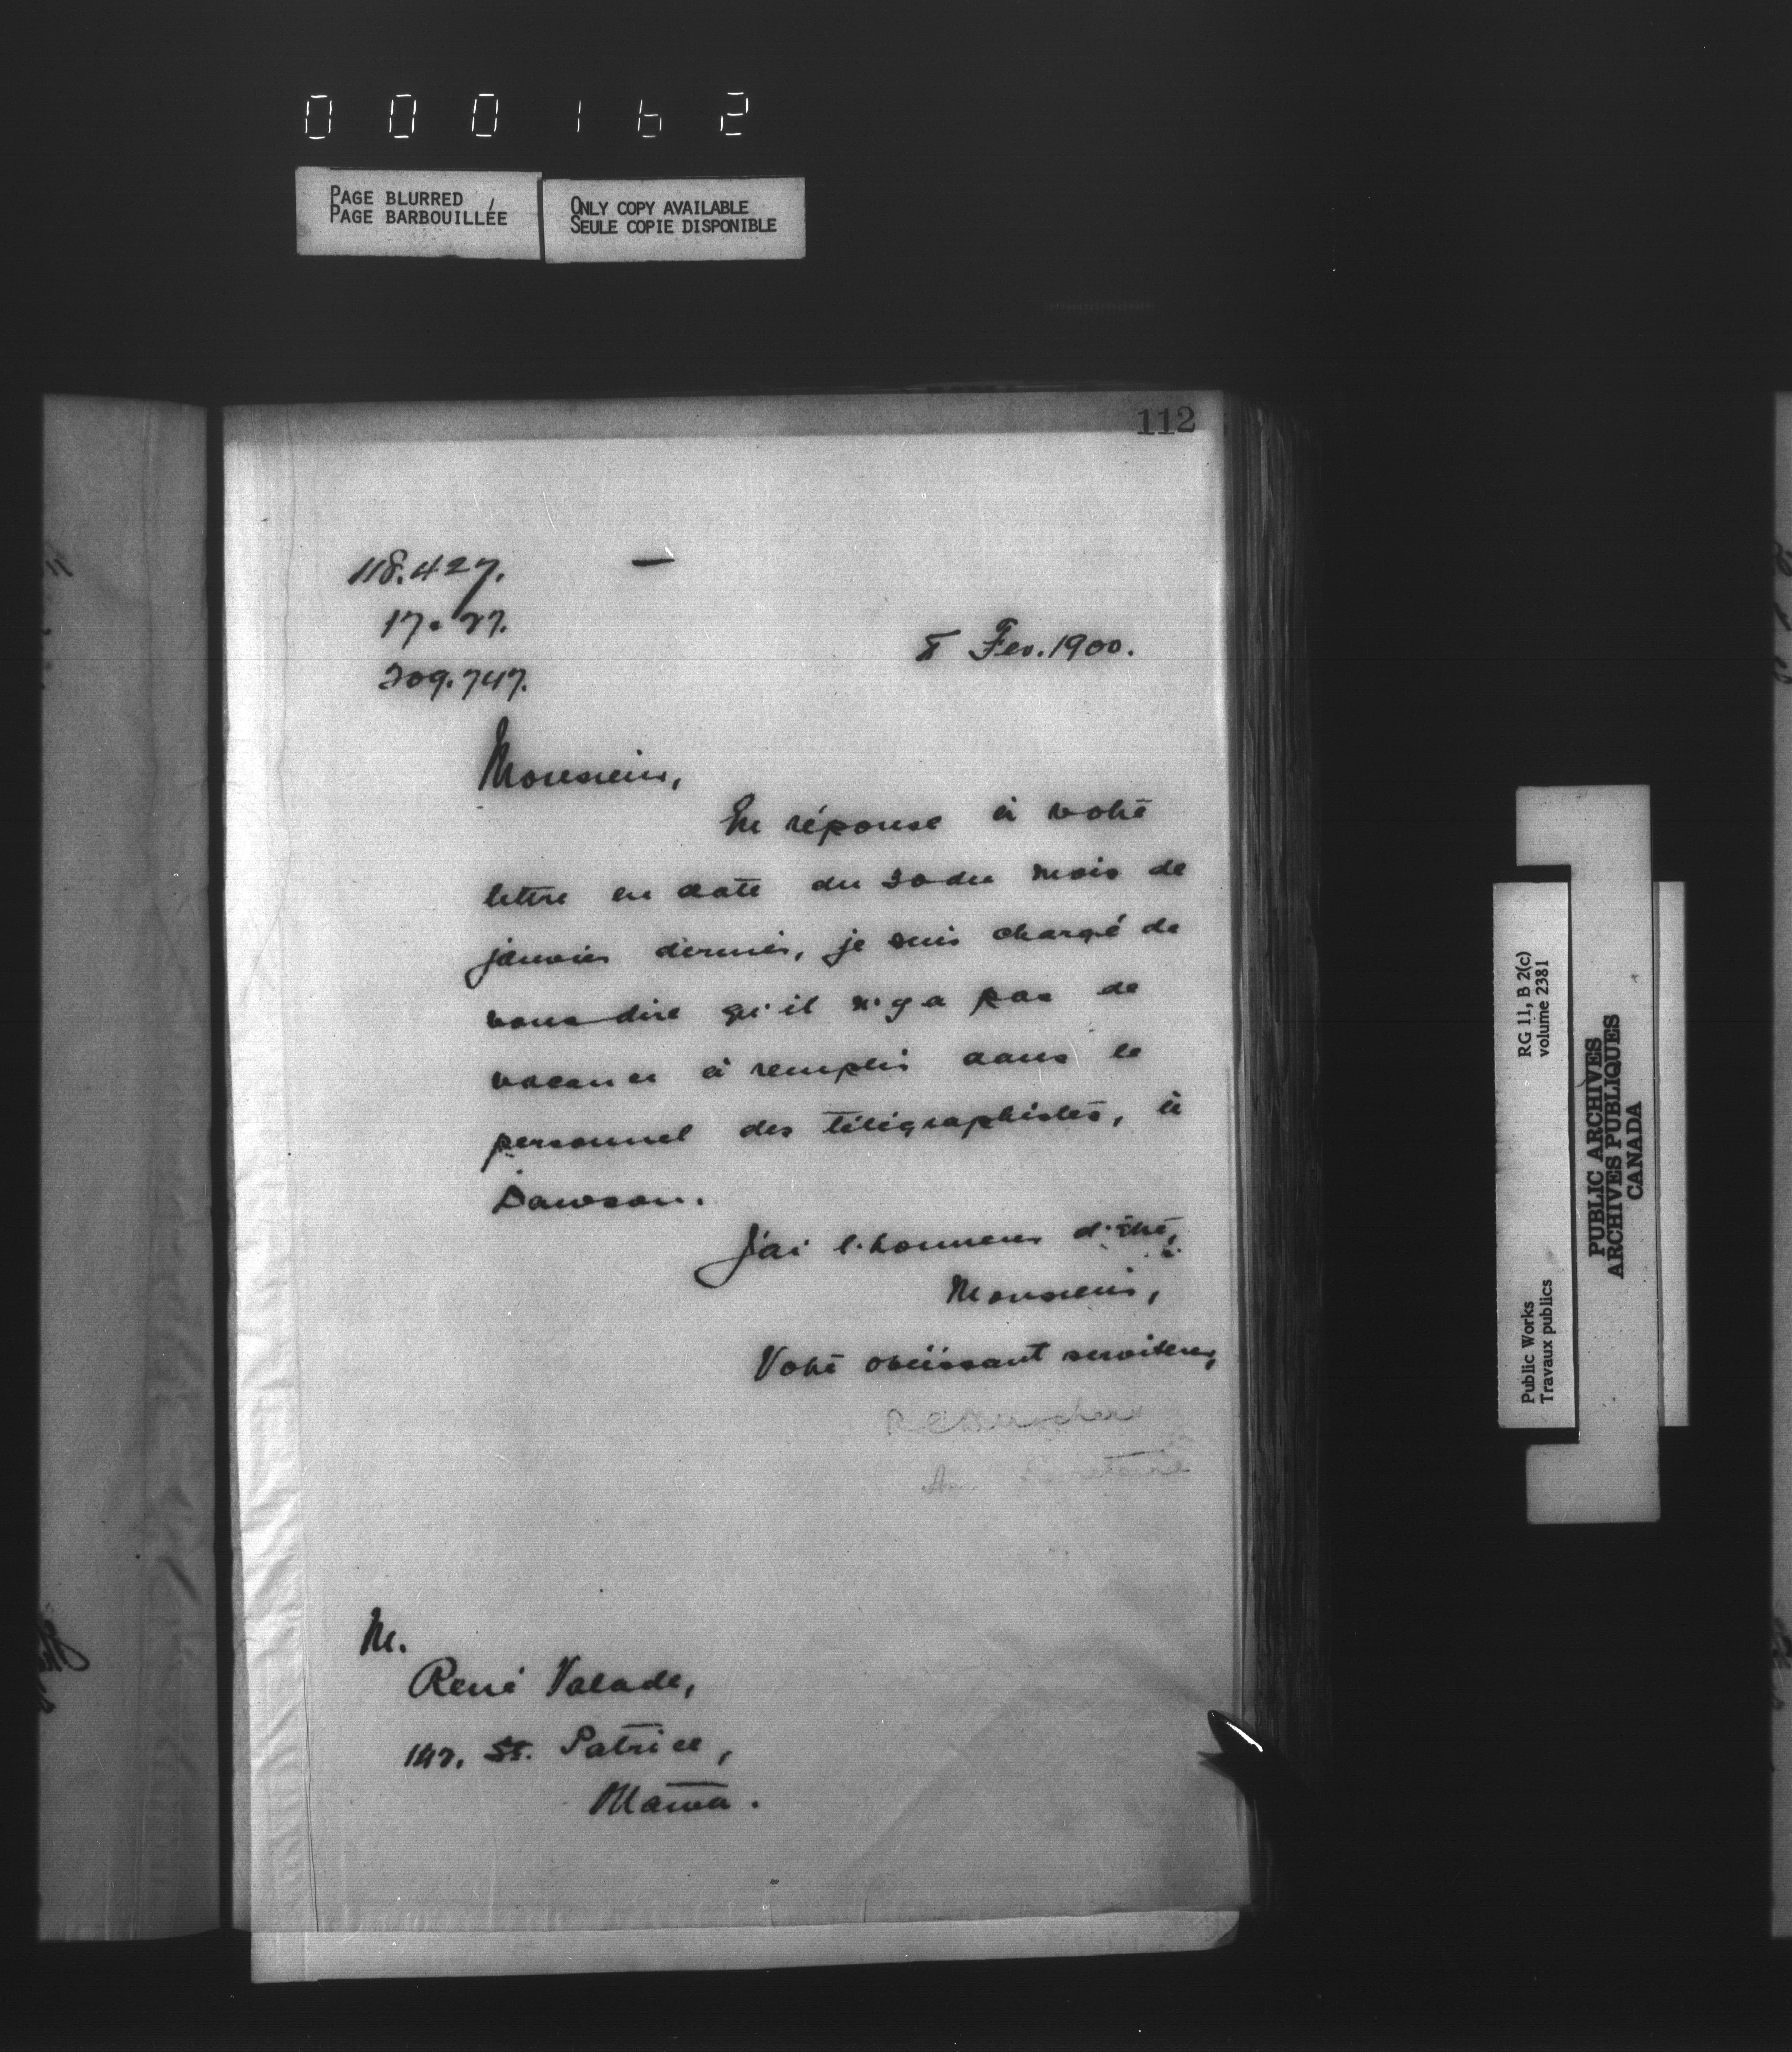 000162
PAGE BLURRED
PAGE BARBOUILLÉE
ONLY COPY AVAILABLE
SEULE COPIE DISPONIBLE
112
118.427.
17. 27.
209.747.
8 Fev. 1900.
Monsieur,
En réponse à votre
lettre en date du 30 du mois de
janvier dernier, je suis chargé de
vous dire qu'il n'y a pas de
vacance à remplir dans le
personnel des télégraphistes, à
Dawson.
J'ai l'honneur d'être,
Monsieur,
Votre obéissant serviteur,
Secrétaire
M.
René Valade,
St. Patrice,
Ottawa.
Public Works
Travaux publics
RG 11, B 2(c)
volume 2381
PUBLIC ARCHIVES
ARCHIVES PUBLIQUES
CANADA